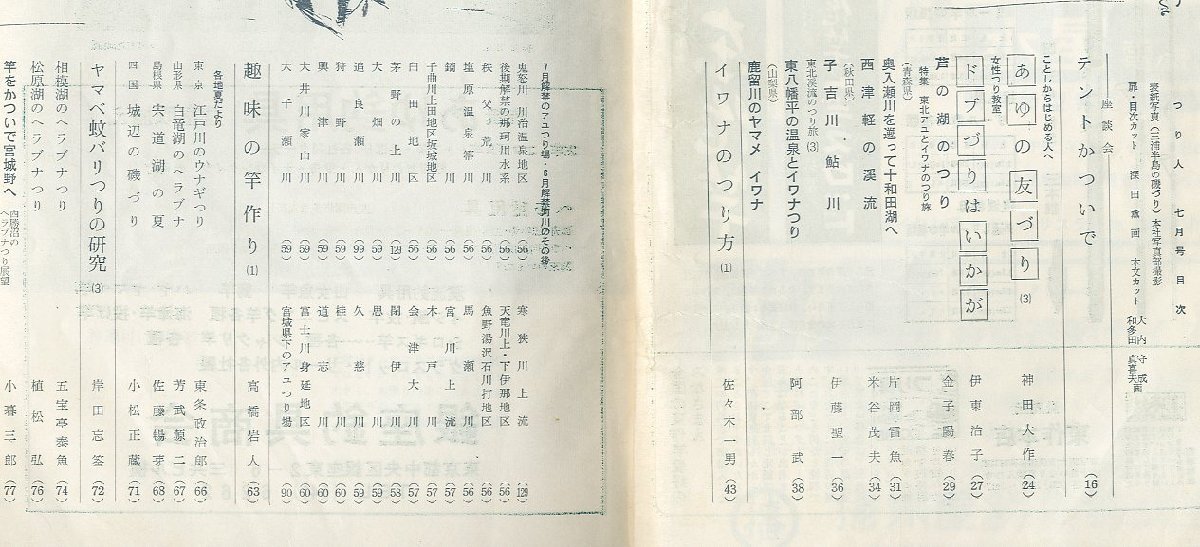 つり人 七月号 目次
表紙写真(三浦半島の磯づり)本社写真部撮影
扉・目次カット 深田薫画 本文カット 大内守成
和多田真喜夫画
座談会
テントかついで (16)
ことしからはじめる人へ
あゆの友づり (3) 神田大作 (24)
女性つり教室
ドブづりはいかが 伊東治子 (27)
芦の湖のつり 金子陽春 (29)
特集 東北アユとイワナのつり旅
(青森県)
奥入瀬川を遡って十和田湖へ 片岡富魚 (31)
西津軽の渓流 米谷茂夫 (34)
(秋田県)
子吉川鮎川 伊藤聖一 (36)
東北渓流のつり旅(3)
東八幡平の温泉とイワナつり 阿部武 (38)
(山梨県)
鹿留川のヤマメ イワナ
イワナのつり方 (1) 佐々木一男 (43)
7月解禁のアユつり場・6月解禁河川のその後
鬼怒川 川治温泉地区 (56)
後期解禁の那珂川水系 (56)
秩父荒川 (56)
塩原温泉箒川 (56)
鏑川 (56)
千曲川上田地区坂城地区 (56)
臼田地区 (56)
茅野の上川 (129)
大畑川 (59)
追良瀬川 (59)
狩野川 (59)
興津川 (59)
大井川家山川 (59)
大千瀬川 (59)
寒狭川上流 (129)
天竜川上・下伊那地区 (56)
魚野湯沢石打地区 (56)
馬瀬川 (56)
宮川上流 (57)
木戸川 (57)
会津大川 (57)
閉伊川 (58)
思川 (59)
久慈川 (59)
桂川 (60)
道志川 (60)
富士川身延地区 (60)
宮城県下のアユつり場 (90)
趣味の竿作り (1) 高橋岩人 (63)
各地夏だより
東京 江戸川のウナギつり 東条政治郎 (66)
山形県 白竜湖のヘラブナ 芳武原二 (67)
島根県 宍道湖の夏 佐藤暢夢 (68)
四国 城辺の磯づり 小松正蔵 (71)
ヤマベ蚊バリつりの研究 (3) 岸田忘筌 (72)
相模湖のヘラブナつり 五宝亭泰魚 (74)
松原湖のヘラブナつり 植松弘 (76)
竿をかついで宮城野へ 小暮三郎 (77)
ヘラブナつり展望